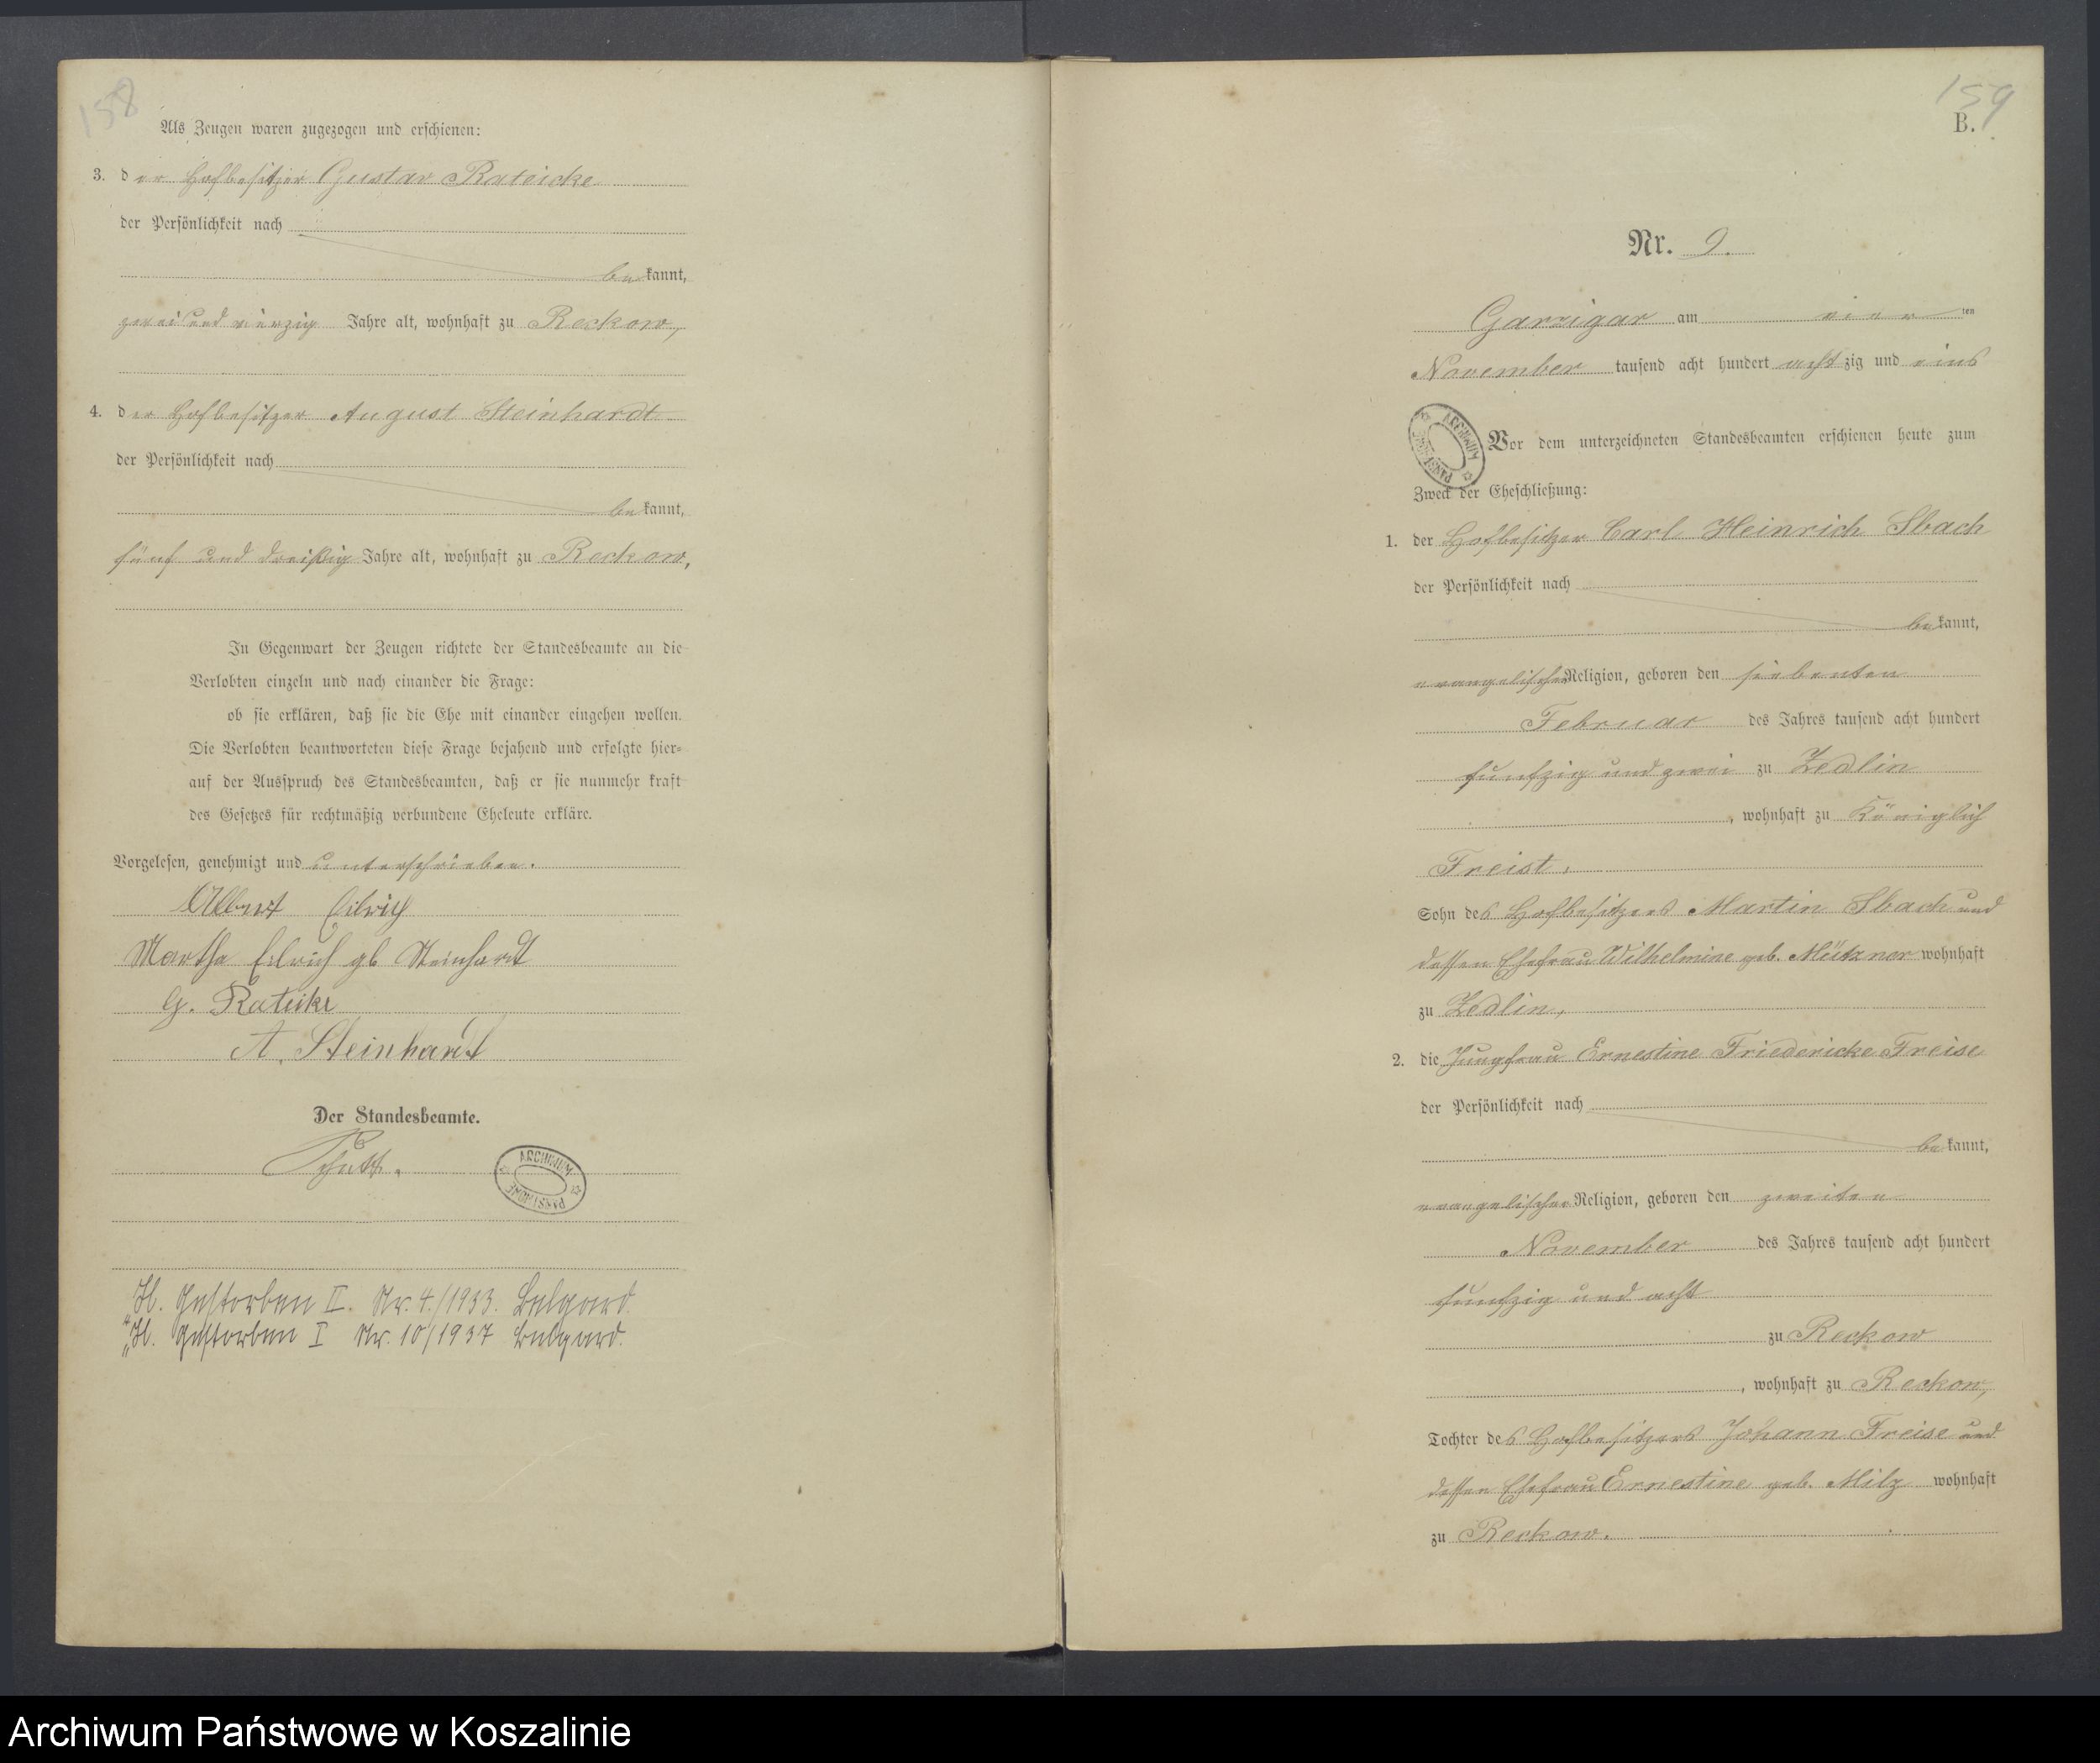 158
Als Zeugen waren zugezogen und erschienen:
3. der Hofbesitzer Gustav Rateicke
der Persönlichkeit nach
bekannt,
zwei und vierzig Jahre alt, wohnhaft zu Reckow,
4. der Hofbesitzer August Steinhardt
der Persönlichkeit nach
bekannt,
fünf und dreißig Jahre alt, wohnhaft zu Reckow,
In Gegenwart der Zeugen richtete der Standesbeamte an die
Verlobten einzeln und nach einander die Frage:
ob sie erklären, daß sie die Ehe mit einander eingehen wollen.
Die Verlobten beantworteten diese Frage bejahend und erfolgte hier-
auf der Ausspruch des Standesbeamten, daß er sie nunmehr kraft
des Gesetzes für rechtmäßig verbundene Eheleute erkläre.
Vorgelesen, genehmigt und unterschrieben.
Albert Eilrich
Martha Eilrich gb Steinhardt
G. Rateike
A. Steinhardt
Der Standesbeamte.
ARCHIWUM PAŃSTWOWE
Gestorben II. Nr. 4/1933. Belgard.
Gestorben I Nr. 10/1937 Belgard.
159
B.
Nr. 9.
Garzigar am vierten
November tausend acht hundert achtzig und eins
ARCHIWUM PAŃSTWOWE
Vor dem unterzeichneten Standesbeamten erschienen heute zum
Zweck der Eheschließung:
1. der Hofbesitzer Carl Heinrich Sbach
der Persönlichkeit nach
bekannt,
evangelischer Religion, geboren den siebenten
Februar des Jahres tausend acht hundert
funfzig und zwei zu Zedlin
, wohnhaft zu Königlich
Freist,
Sohn des Hofbesitzers Martin Sbach und
dessen Ehefrau Wilhelmine geb. Mützner wohnhaft
zu Zedlin,
2. die Jungfrau Ernestine Friedericke Freise
der Persönlichkeit nach
bekannt,
evangelischer Religion, geboren den zweiten
November des Jahres tausend acht hundert
funfzig und acht
zu Reckow
, wohnhaft zu Reckow,
Tochter des Hofbesitzers Johann Freise und
dessen Ehefrau Ernestine geb. Milz wohnhaft
zu Reckow.
Archiwum Państwowe w Koszalinie